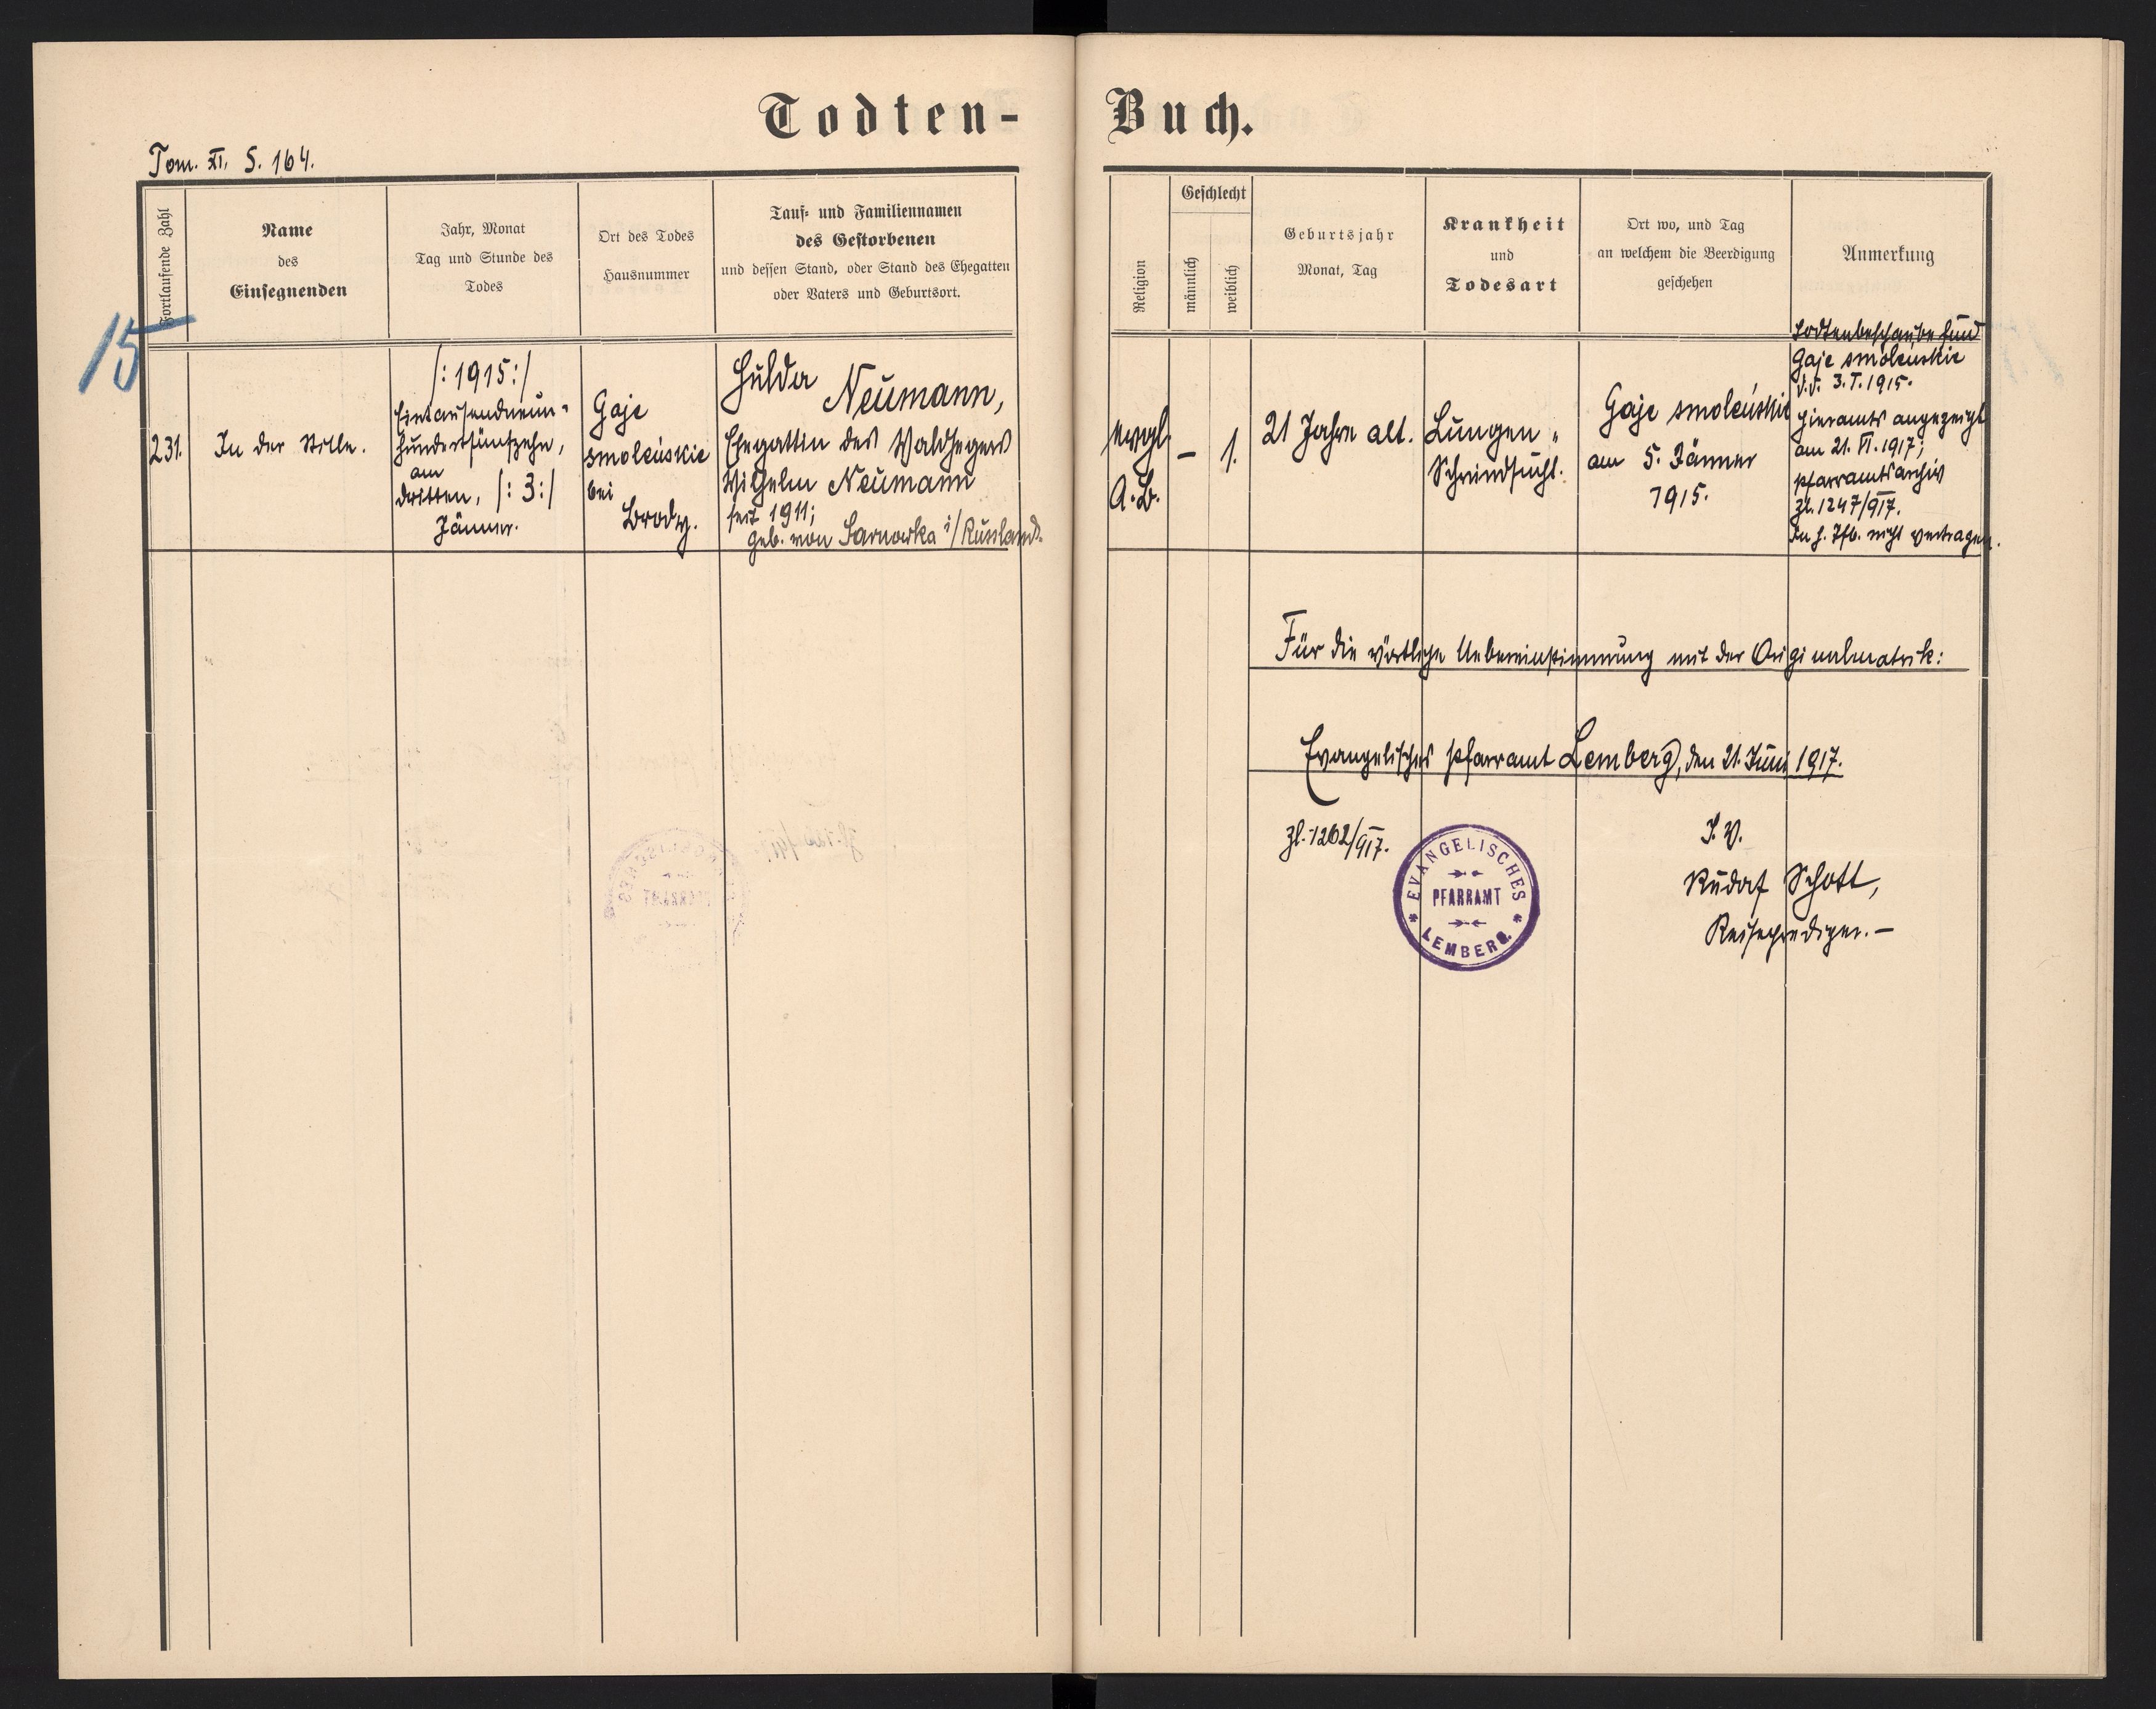 Todten-Buch.
Tom. XI. S. 164.
15
Fortlaufende Zahl
Name
des
Einsegnenden
Jahr, Monat
Tag und Stunde des
Todes
Ort des Todes
Hausnummer
Tauf- und Familiennamen
des Gestorbenen
und dessen Stand, oder Stand des Ehegatten
oder Vaters und Geburtsort.
Religion
Geschlecht
männlich
weiblich
Geburtsjahr
Monat, Tag
Krankheit
und
Todesart
Ort wo, und Tag
an welchem die Beerdigung
geschehen
Anmerkung
231.
In der Stille.
/:1915:/
Eintausendneun-
hundertfünfzehn,
am
dritten, /:3:/
Jänner.
Gaje
smoleńskie
bei
Brody.
Hulda
Neumann,
Ehegattin des Waldhegers
Wilhelm Neumann
seit 1911;
geb. von Sarnowka i/Russland.
evgl.
A.B.
–
1.
21 Jahre alt.
Lungen-
Schwindsucht.
Gaje smoleńskie
am 5. Jänner
1915.
Todtenbeschaubefund
Gaje smoleńskie
d.d. 3. I. 1915.
hieramts angezeigt
am 21. VI. 1917;
Pfarramtsarchiv
Zl. 1247/917.
In h. nicht vertragen.
Für die wörtliche Uebereinstimmung mit der Originalmatrik:
Evangelisches Pfarramt Lemberg, den 21. Juni 1917.
Zl. 1262/917.
EVANGELISCHES
PFARRAMT
LEMBERG.
I. V.
Rudolf Schott,
Reiseprediger.–